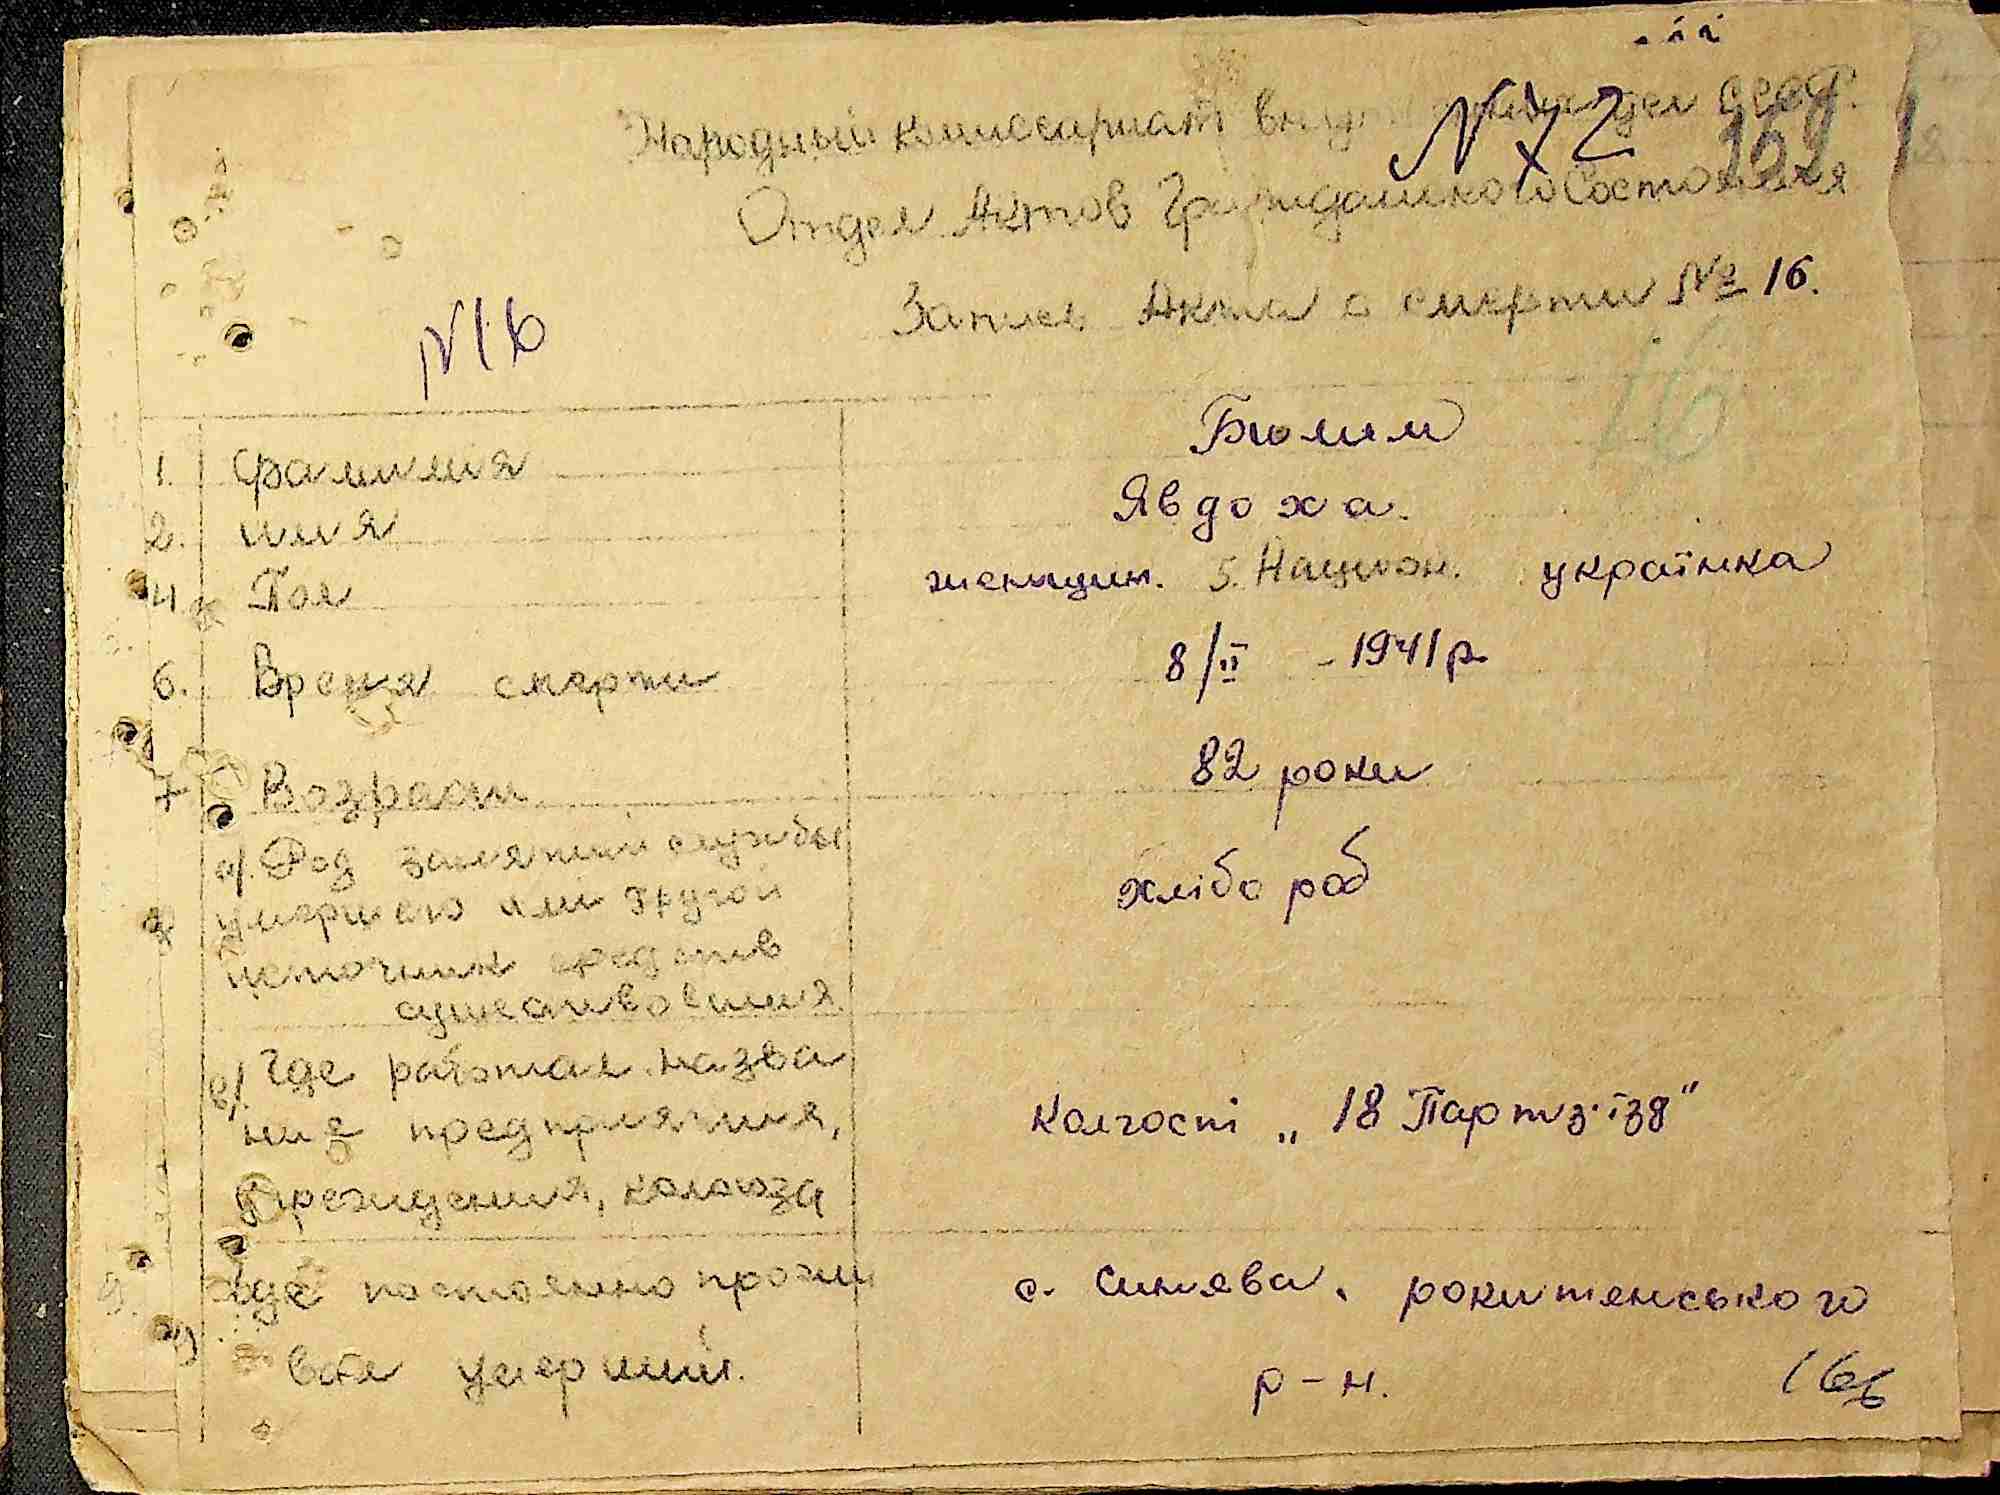 Народный комиссариат вну дел СССР.
N 12
Отдел Актов Гражданского Состояния
Запись Акта о смерти № 16.
N 16
16
1. Фамилия
2. имя Явдоха.
4. Пол женщин. 5. Национ. українка
6. Время смерти 8/II - 1941 р.
7 Возраст 82 роки
а/. Род занятий службы
умершего или другой хлібороб
источник средств
существования.
в/. Где работал. назва
ние предприятия, колгосп „ 18 Партз·їзд"
учреждения, колхоза
9. где постоянно прожи с. Синява, рокитянського
вал умерший. р-н.